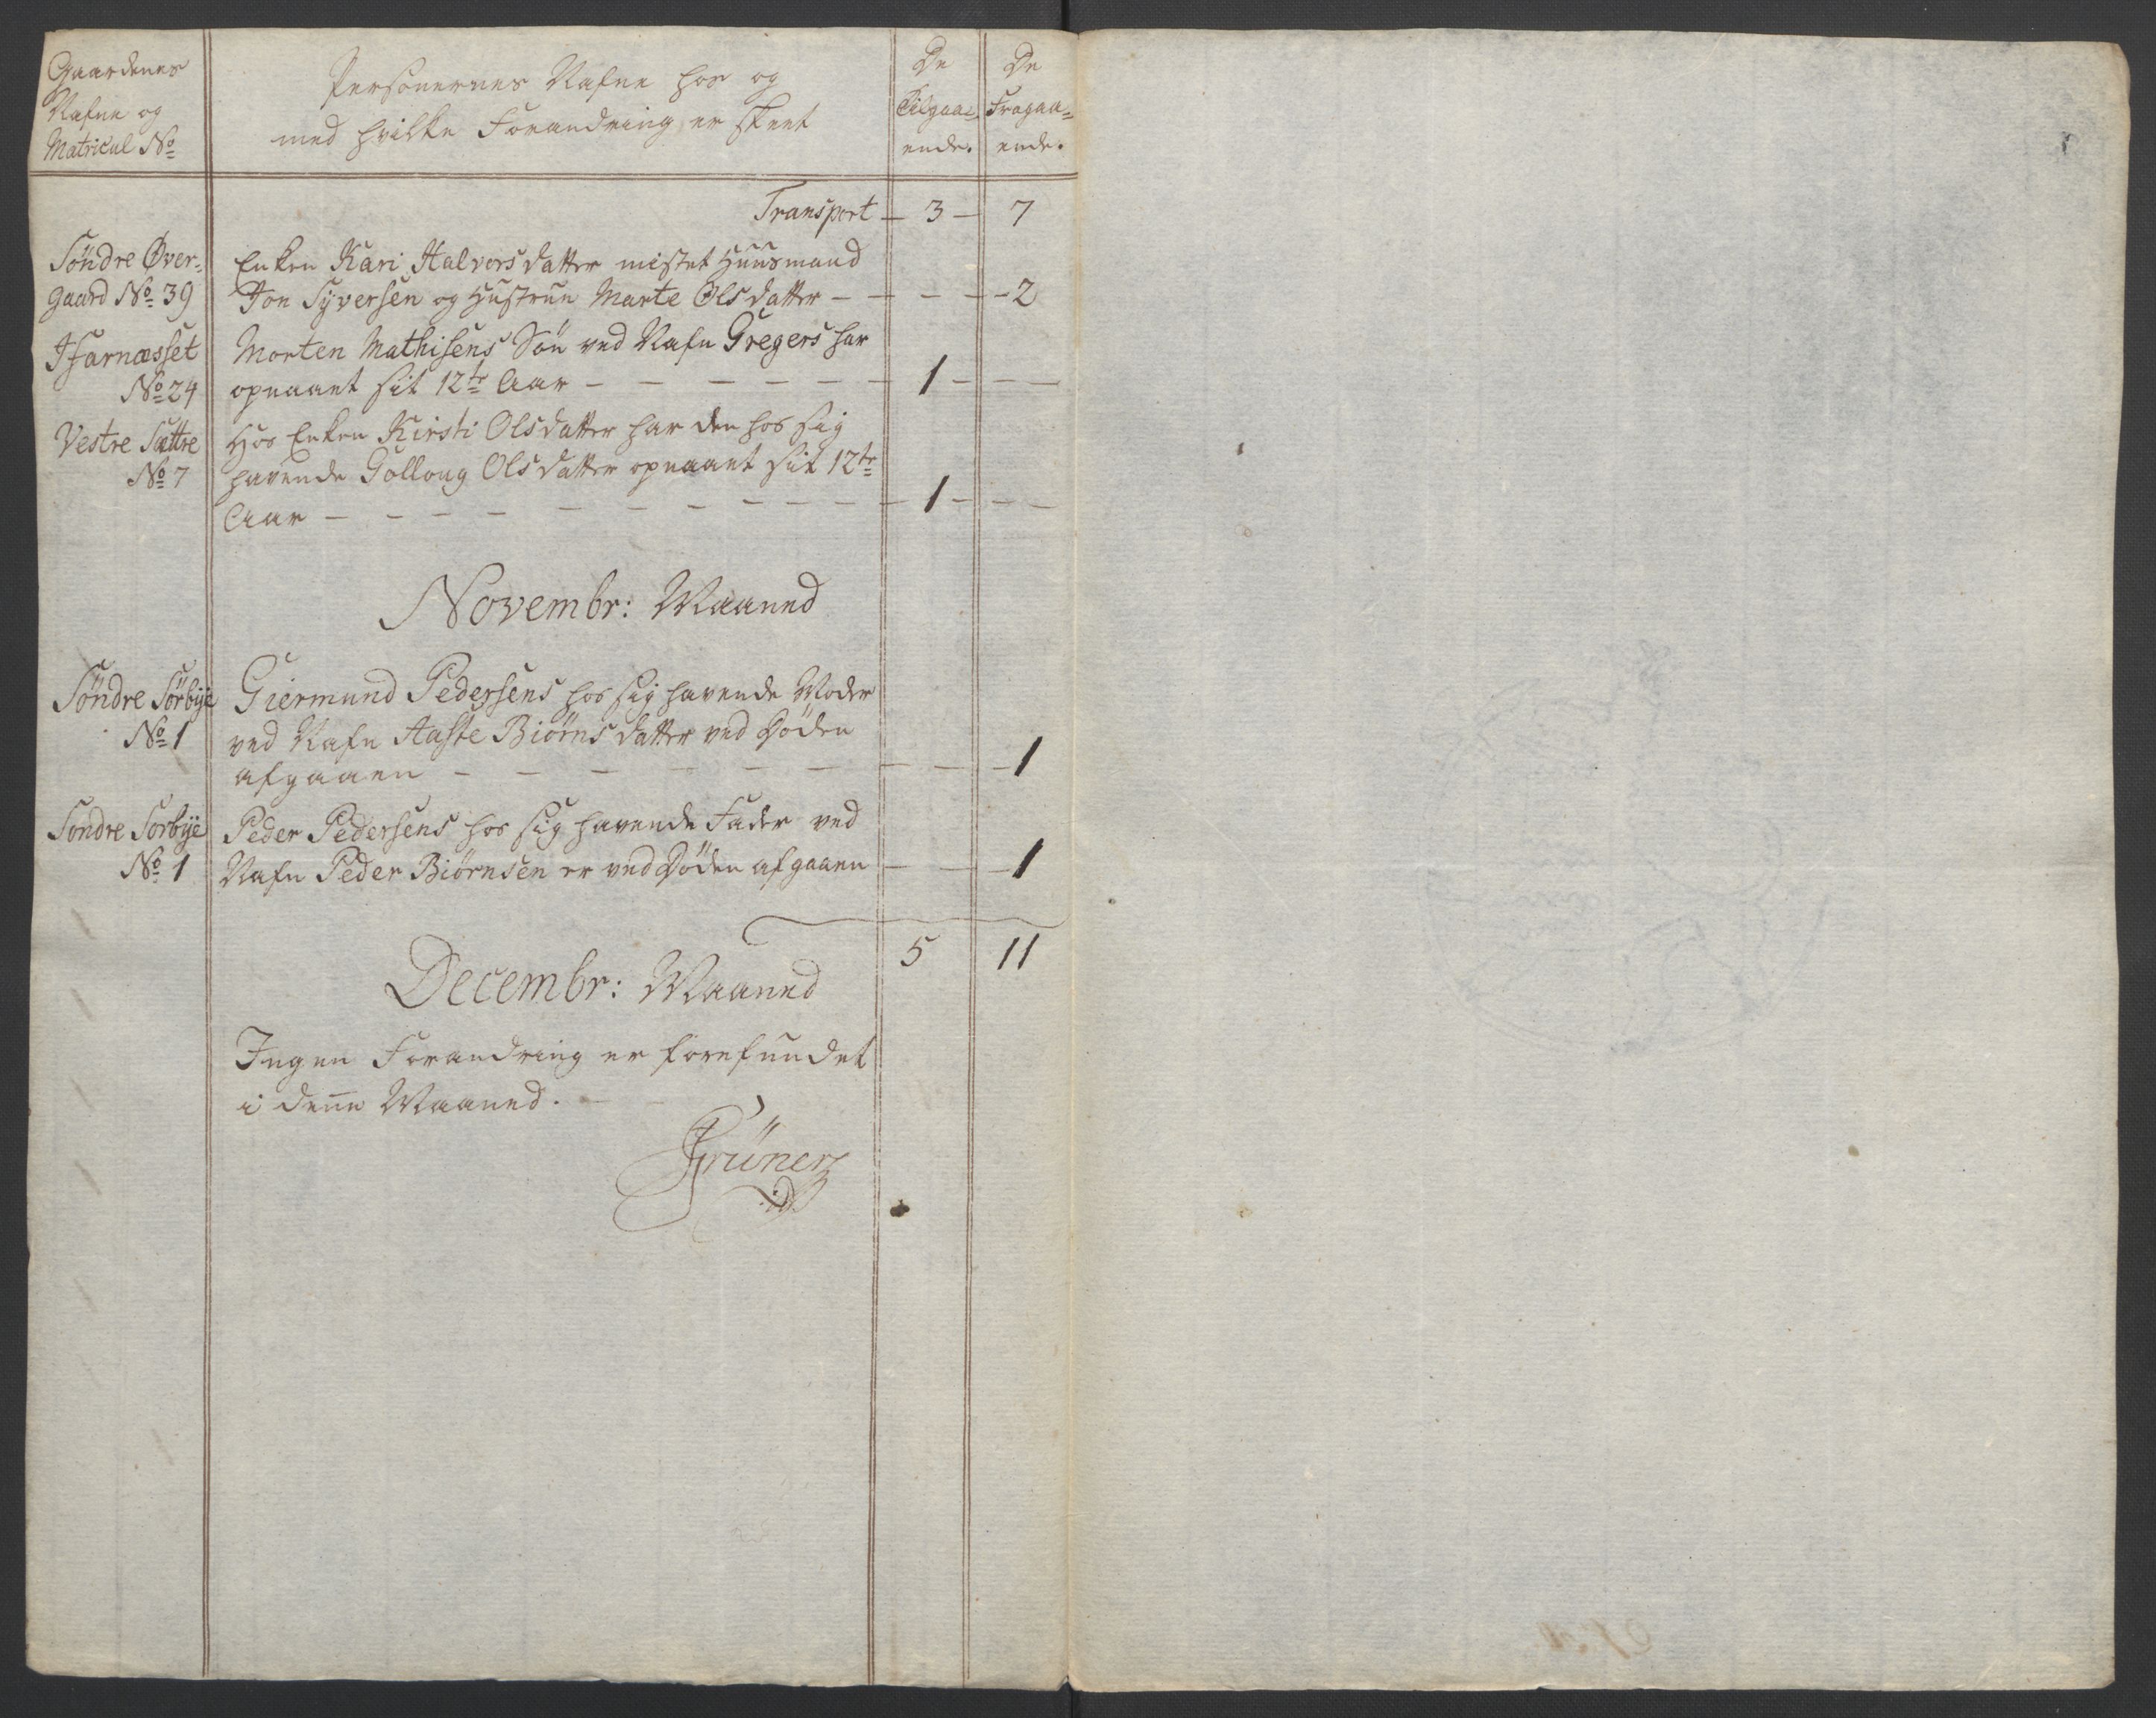 Gaardenes
Nafne og
Matricul No
Personernes Nafne hos og
med hvilke Forandring er skeet
De
Tilgaa=
ende.
De
Fragaa=
ende.
Transport — 3 — 7
Söndre Øver= Enken Kari Halvorsdatter mistet Huusmand
gaard No 39 Jon Syversen og Hustrue Marte Olsdatter — — — — 2
Ifarnæsset Morten Mathisens Sön ved Nafn Gregers har
No 24 opnaaet sit 12te Aar — — — — — — 1 — — —
Vestre Sættre Hos Enken Kirsti Olsdatter har den hos sig
No 7 havende Gollaug Olsdatter opnaaet sit 12te
Aar — — — — — — — — — — 1 — — —
Novembr: Maaned
Söndre Sörbÿe Giermund Pedersens hos sig havende Moder
No 1 ved Nafn Aaste Biörnsdatter ved Döden
afgaaen — — — — — — — — — 1
Sondre Sorbÿe Peder Pedersens hos sig havende Fader ved
No 1 Nafn Peder Biörnsen er ved Döden afgaaen — — — 1
5 11
Decembr: Maaned
Ingen Forandring er forefundet
i denne Maaned. —
Grüner